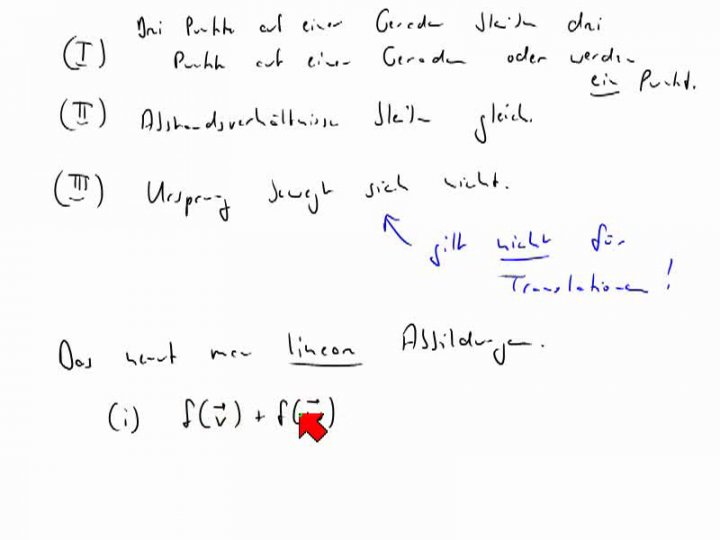 (I) Drei Punkte auf einer Geraden bleiben drei
Punkte auf einer Geraden oder werden
ein Punkt.
(II) Abstandsverhältnisse bleiben gleich.
(III) Ursprung bewegt sich nicht.
gilt nicht für
Translationen!
Das nennt man lineare Abbildungen.
(i) f(v⃗) + f(